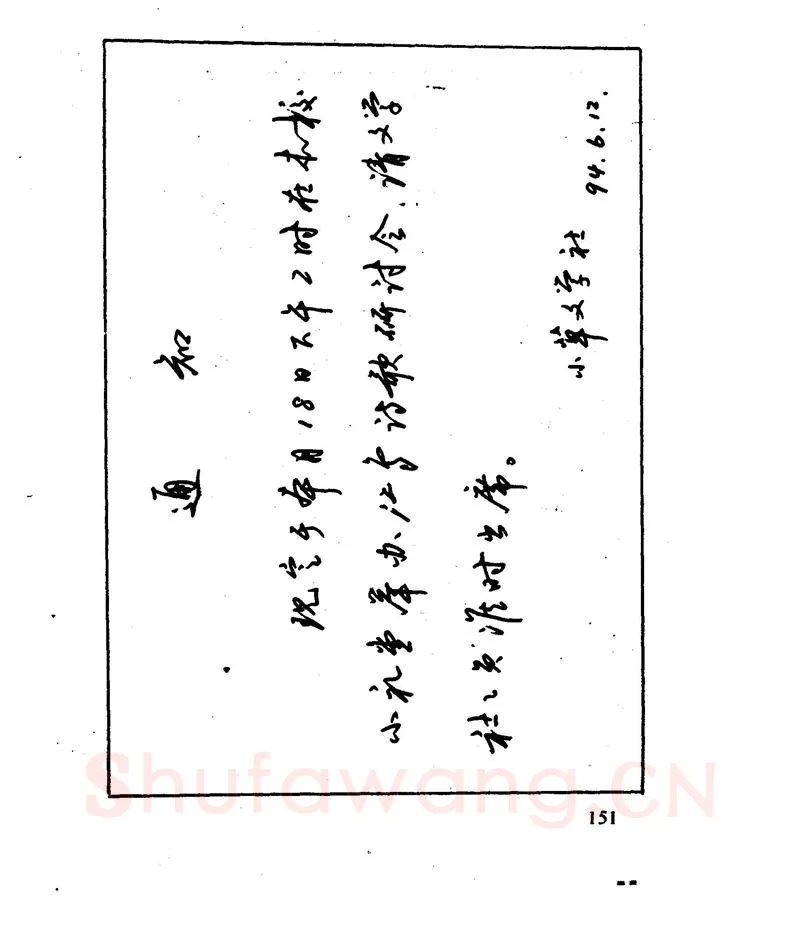 通知
现定于本月18日下午2时在本校
小礼堂举办汪写诗歌研讨会,请文学
社〻员准时出席。
小草文学社
94.6.12.
151
Shufawang.CN